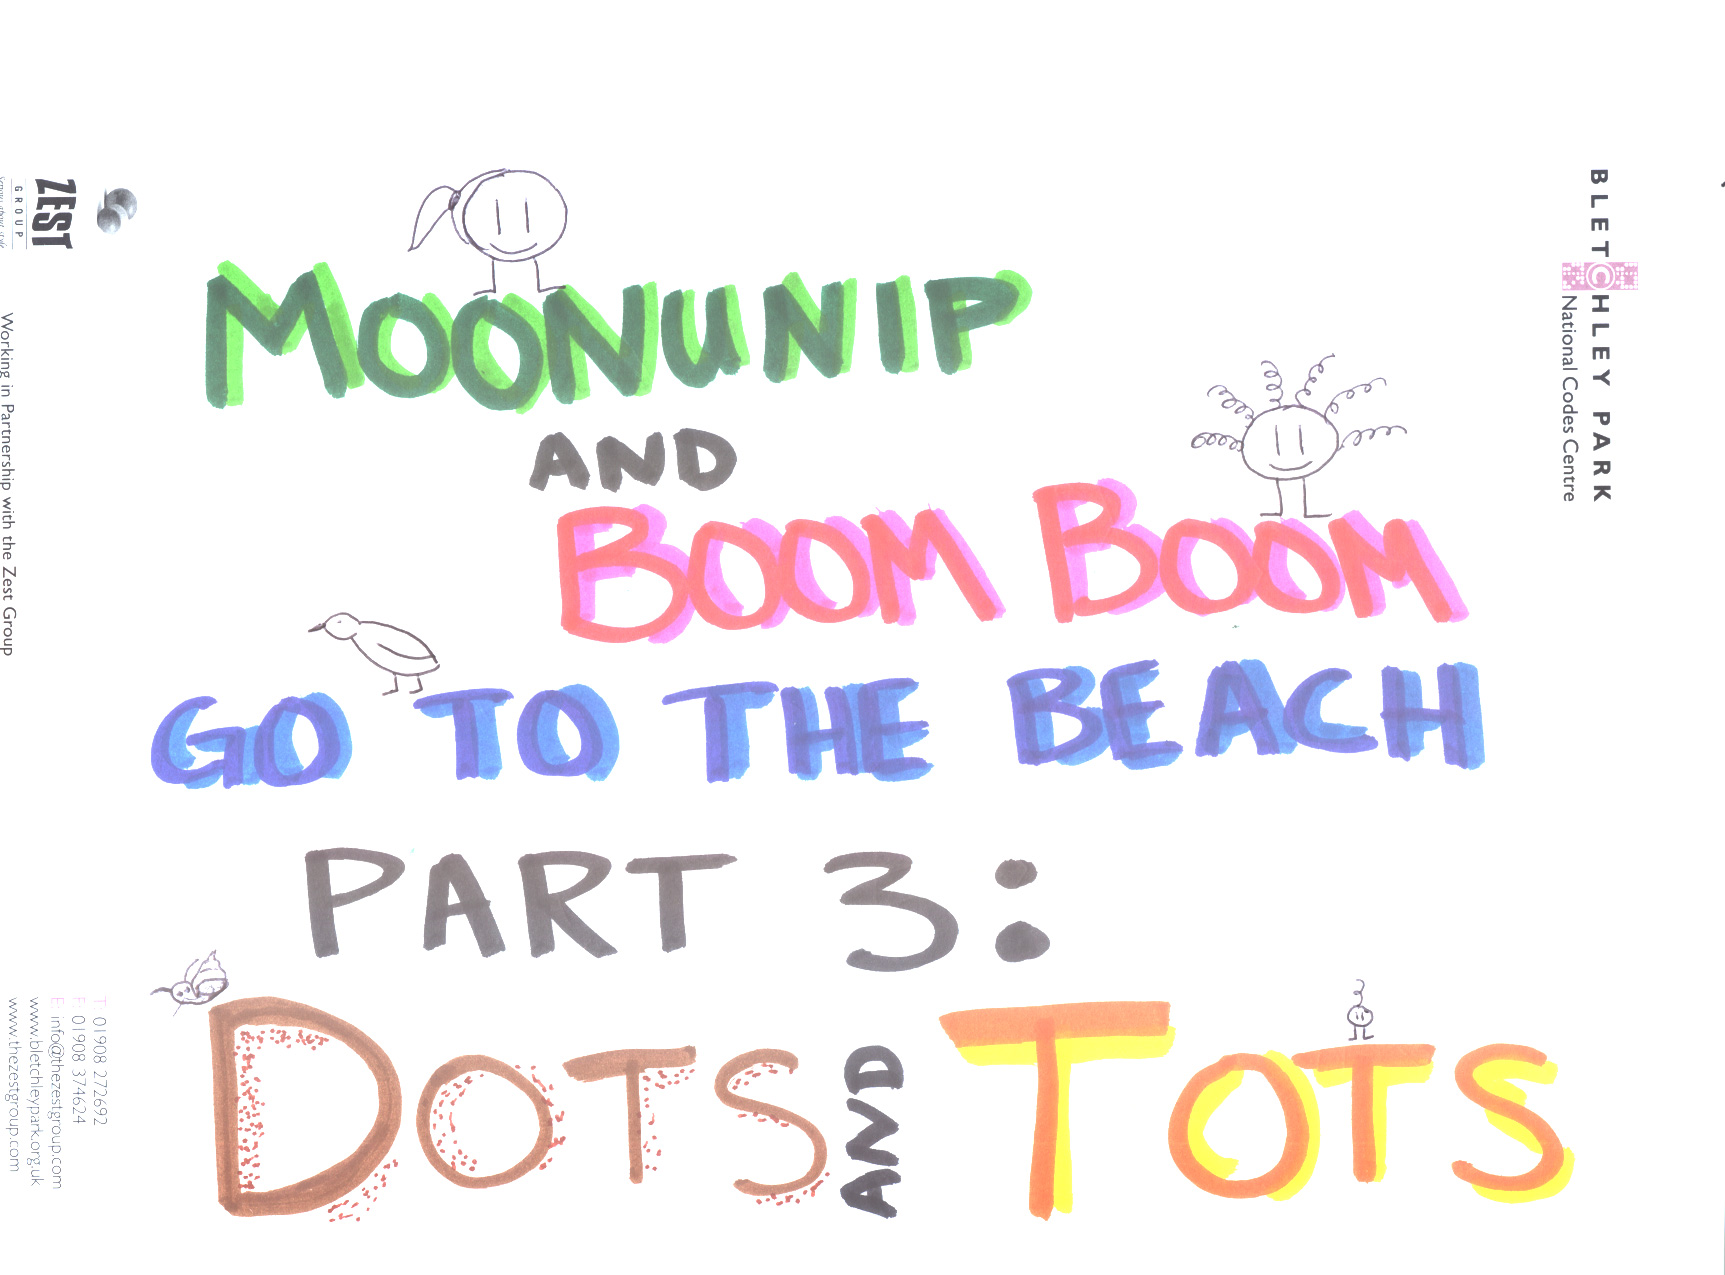 MOONUNIP
AND
BOOM BOOM
GO TO THE BEACH
PART 3:
DOTS AND TOTS
BLETCHLEY PARK
National Codes Centre
ZEST
GROUP
Working in Partnership with the Zest Group
T: 01908 272692
F: 01908 374624
E: info@thezestgroup.com
www.bletchleypark.org.uk
www.thezestgroup.com